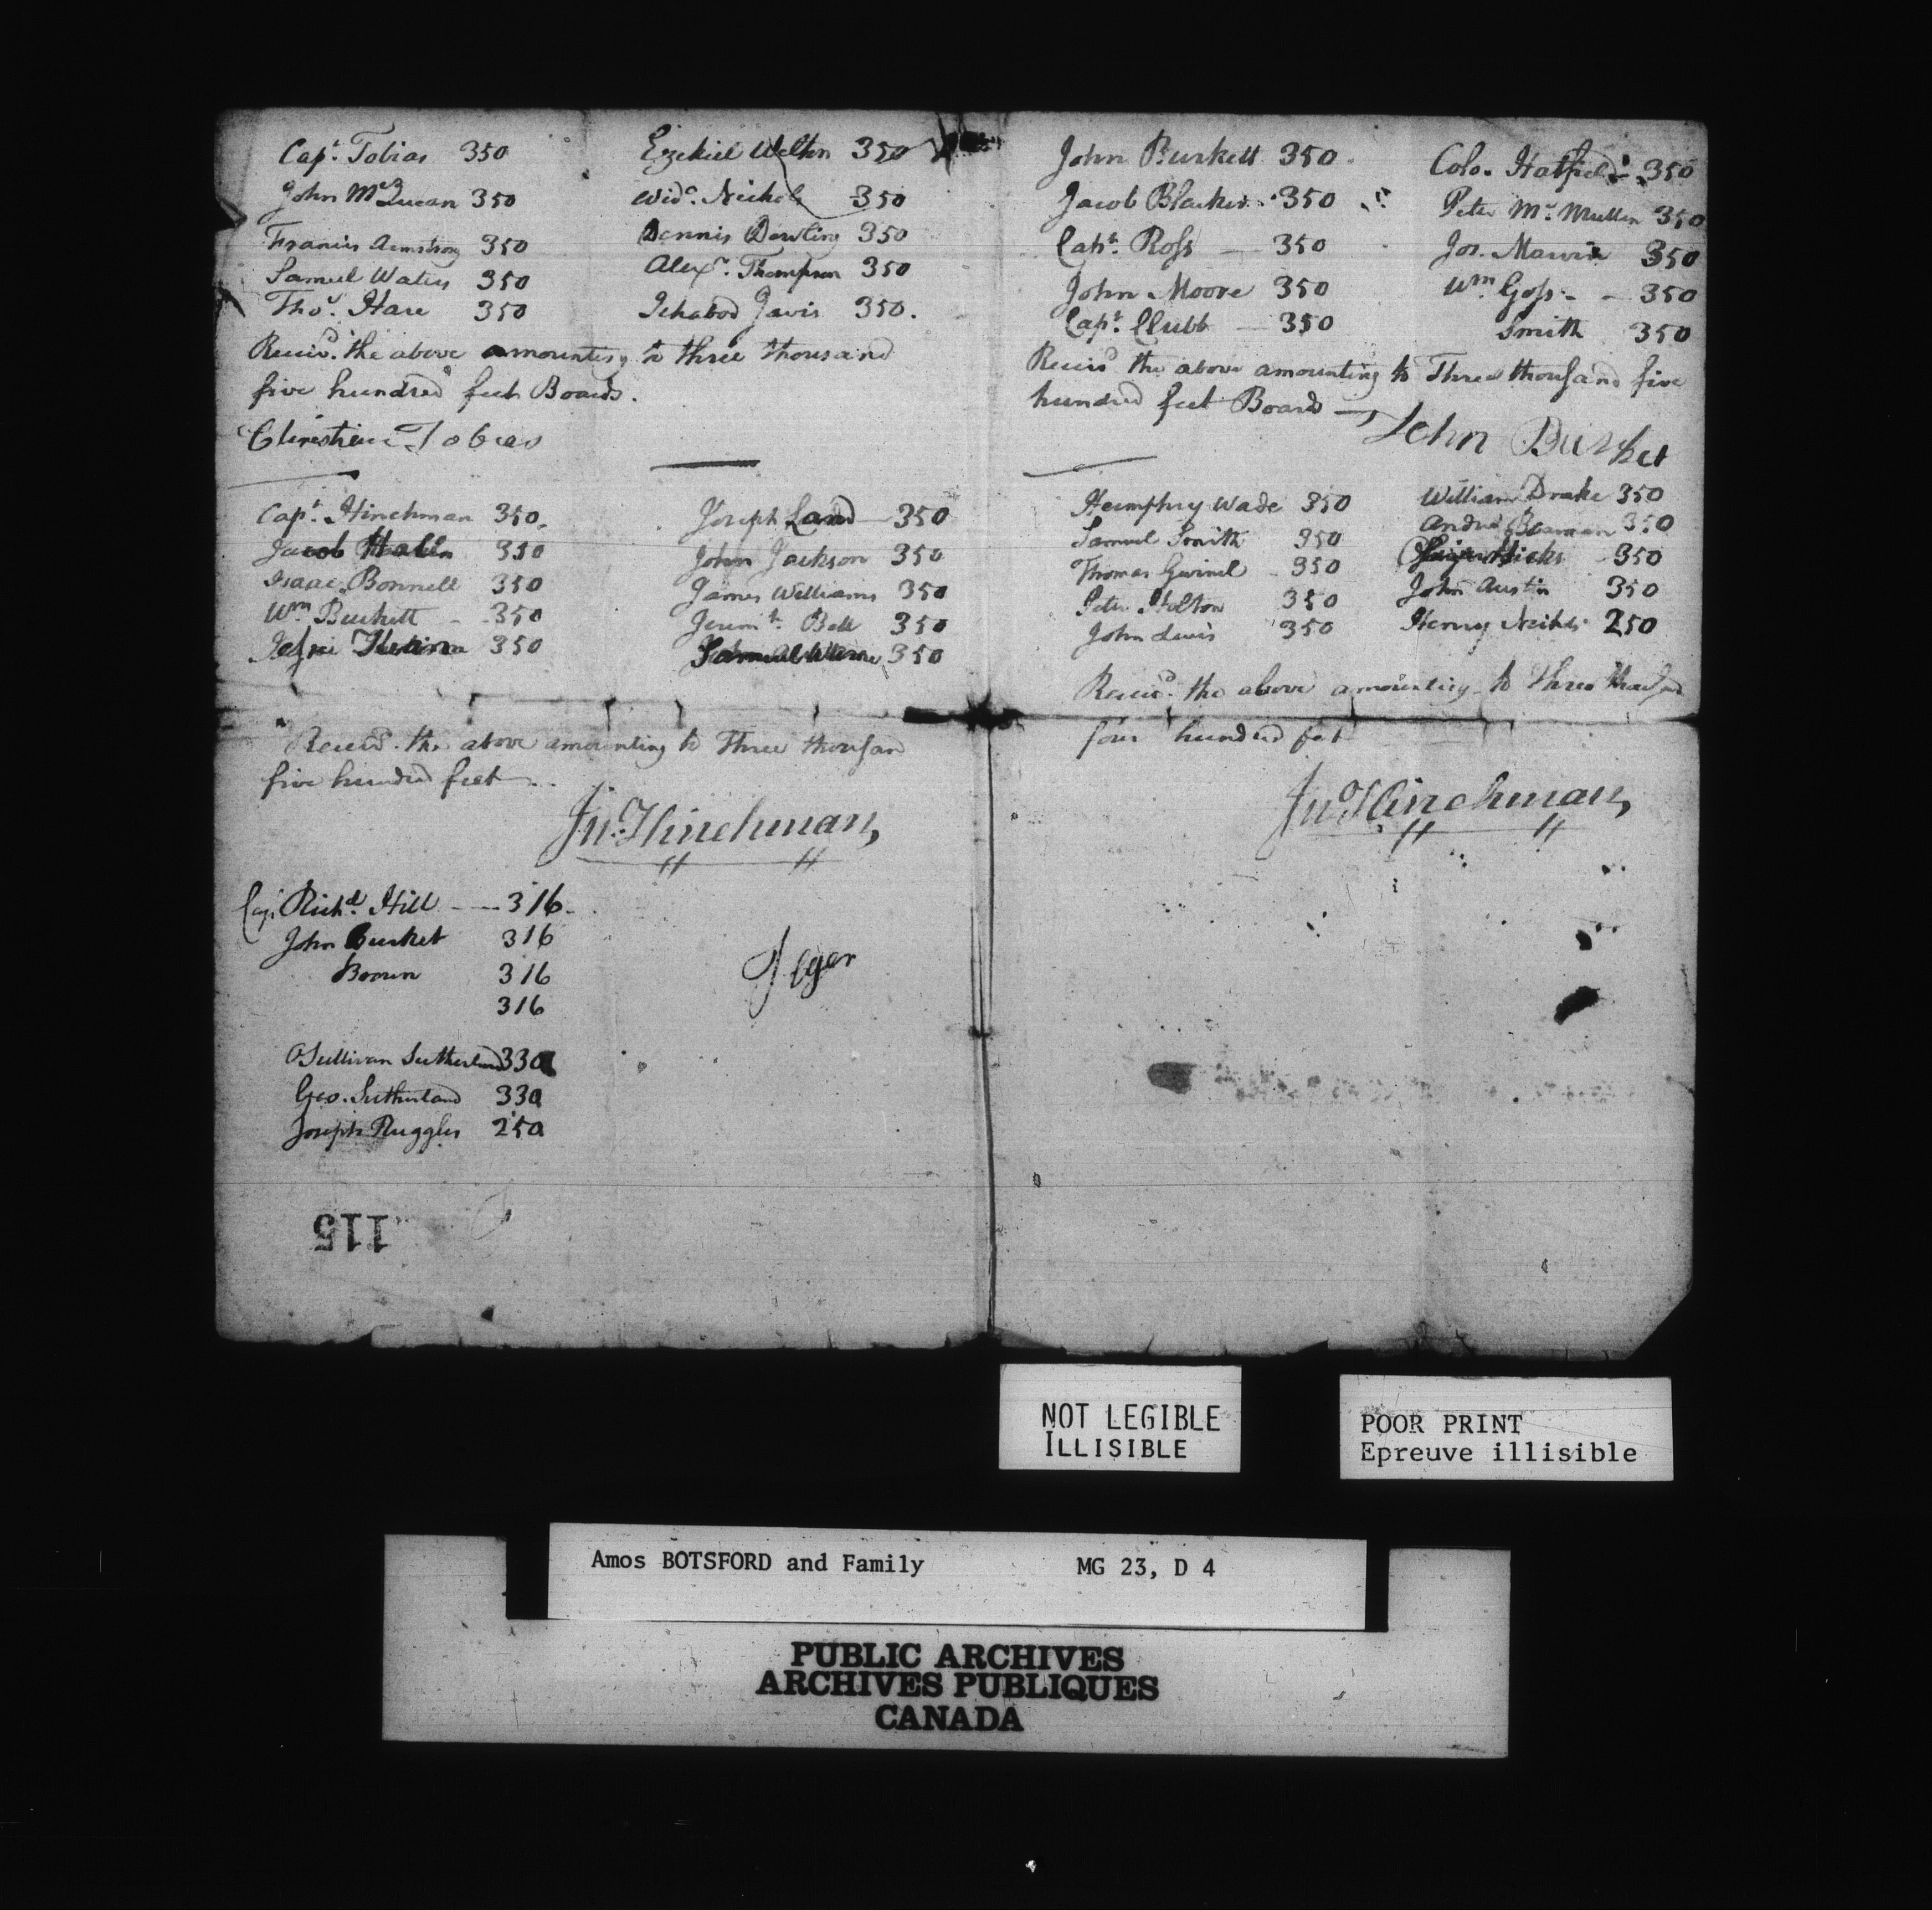 Capt. Tobias 350
John McQuean 350
Francis Armstrong 350
Samuel Waters 350
Thos. Hare 350
Ezekiel Welton 350
Widw. Nichols 350
Dennis Dowling 350
Alexr. Thompson 350
Ichabod Jarvis 350.
Receivd. the above amounting to three thousand
five hundred feet Boards.
Christian Tobias
Capt. Hinchman 350.
Jacob 350
Isaac Bonnell 350
Wm. Burkett - 350
350
Joseph Land 350
John Jackson 350
James Williams 350
Jeremh. Bell 350
350
Receivd. the above amounting to Three thousan
five hundred feet
Jno. Hinchman,
Cap. Richd. Hill - - 316
John Burket 316
Brown 316
316
O Sullivan Sutherland 330
Geo. Sutherland 330
Joseph Ruggles 250
115
John Burkett 350.
Jacob Blacker 350
Capt. Ross - 350
John Moore 350
Capt. Clubb - 350
Colo. Hatfield - 350
Peter McMullen 350
Jos. Marvin 350
Wm. Goss - - 350
Smith 350
Receivd the above amounting to Three thousand five
hundred feet Boards
John Burket
Humphry Wade 350
Samuel Smith 350
Thomas Gwinel 350
Peter Stolton 350
John Lewis 350
William Drake 350
Andrw Beaman 350
Hicks 350
John Austin 350
Henry 250
Receivd. the above amounting to three thousand
four hundred feet
Jno. Hinchman,
NOT LEGIBLE
ILLISIBLE
POOR PRINT
Epreuve illisible
Amos BOTSFORD and Family MG 23, D 4
PUBLIC ARCHIVES
ARCHIVES PUBLIQUES
CANADA